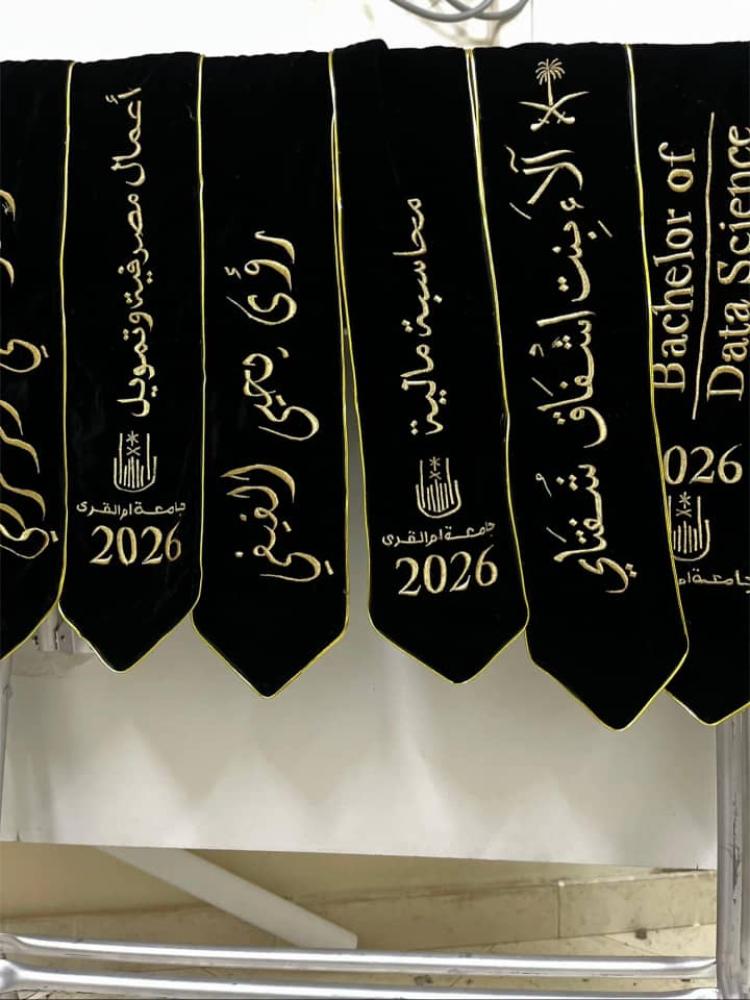 أعمال مصرفية وتمويل
جامعة ام القرى
2026
رؤى يحيى الفيفي
محاسبة مالية
جامعة ام القرى
2026
آلاء بنت اشفاق شفتاي
Bachelor of
Data Science
026
جامعة ام